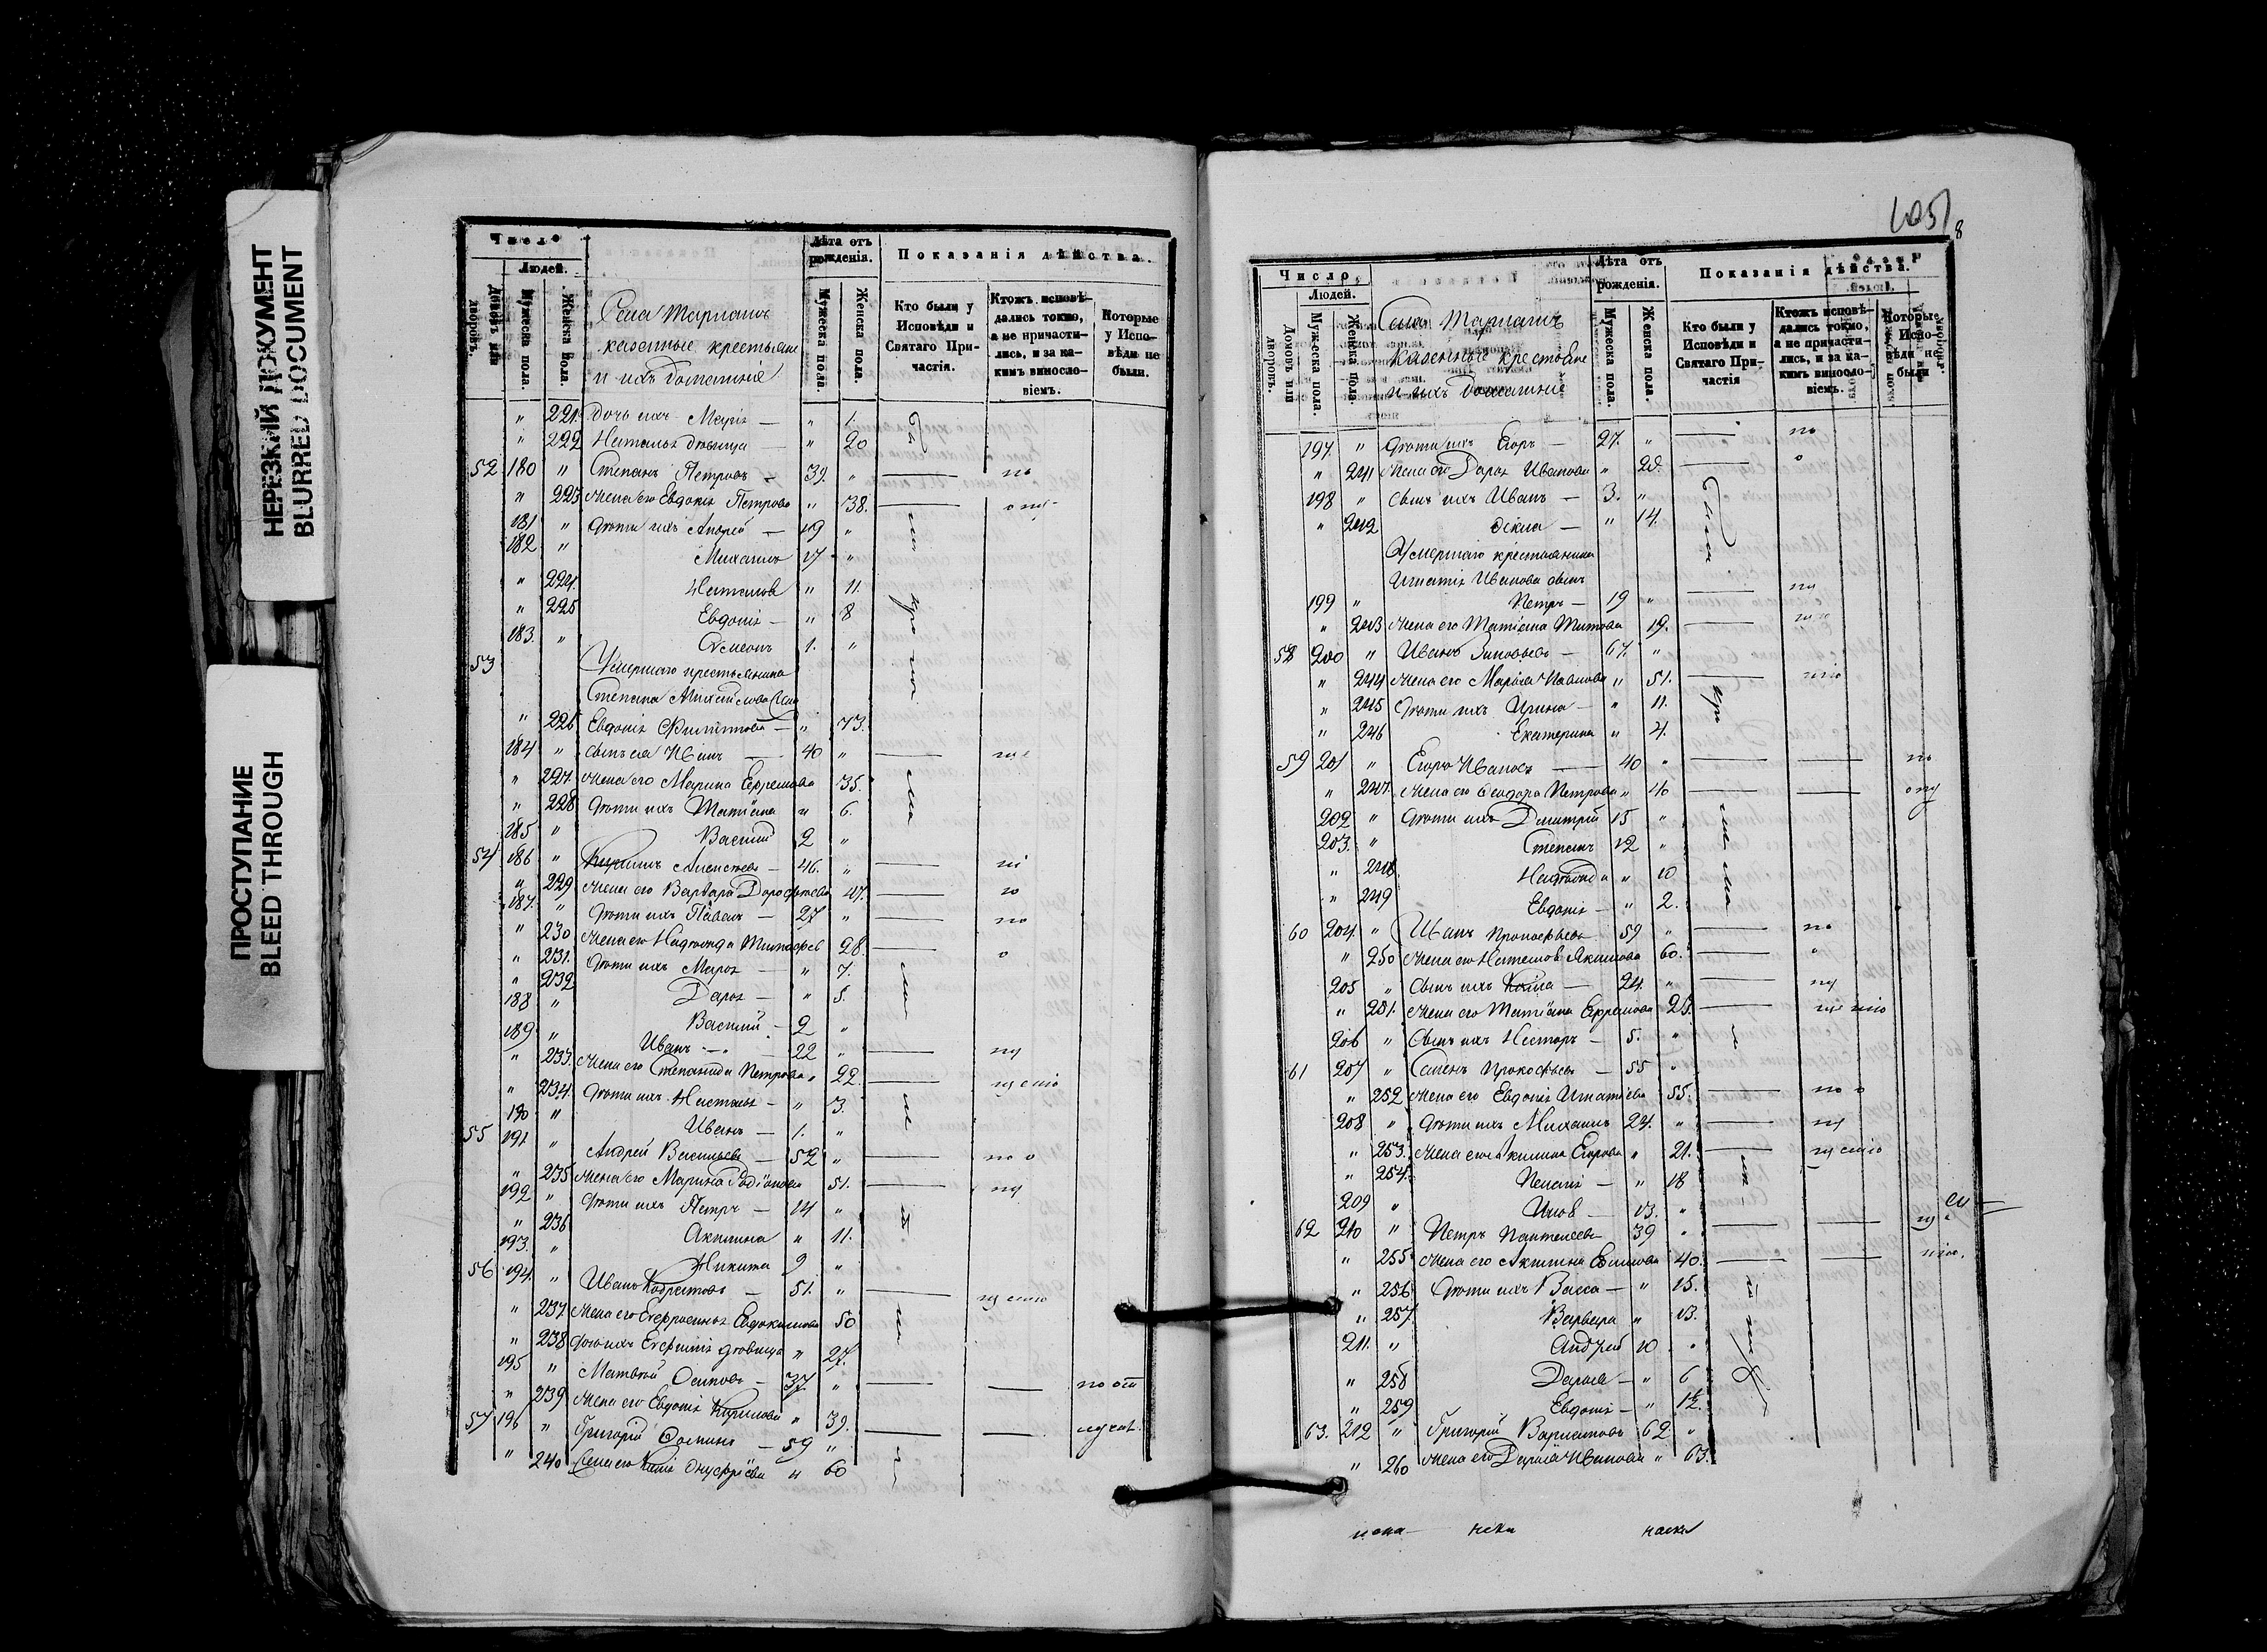 НЕРЕЗКИЙ ДОКУМЕНТ
BLURRED DOCUMENT
ПРОСТУПАНИЕ
BLEED THROUGH
Число
Людей.
Домовъ или дворовъ.
Мужеска пола.
Женска пола.
Села
казенные крестьяне
и ихъ домашнія
Лѣта отъ рожденія.
Мужеска пола.
Женска пола.
Показанія дѣйства.
Кто были у Исповѣди и Святаго Причастія.
Ктожъ исповѣдались токмо, а не причастились, и за какимъ винословіемъ.
Которые у Исповѣди не были.
" 221. дочь ихъ Марія — " 1.
" 222 Наталья дѣвица — " 20
52 180 " Степанъ Петровъ — 39. "
" 223 Жена его Евдокія Петрова " 38.
181 " Дѣти ихъ Андрей — 19 "
182 " Михаилъ 17 "
" 224. Наталья " 11.
" 225 Евдокія — " 8
183. " Симеонъ 1. "
53 Умершаго крестьянина
Степана
" 226 Евдокія Филиппова — " 73.
184 " сынъ ея Иванъ — 40 "
" 227. Жена его Марина Ефремова 35.
" 228 Дѣти ихъ Татіана " 6.
185 " Василій 2 "
54 186 " Кирилъ Алексѣевъ — 46. "
" 229 Жена его Варвара Дорофѣева 47.
187. " Дѣти ихъ Павелъ — 27 "
" 230 Жена его Надѣжда 28.
" 231. Дѣти ихъ Марья — " 7.
" 232 Дарья — " 5.
188 " Василій — 2 "
189 " Иванъ — 22 "
" 233. Жена его Степанида Петрова " 22.
" 234. Дѣти ихъ Наталья — " 3.
190 " Иванъ — 1. "
55 191 " Андрей Васильевъ — 52 "
" 235 Жена его Марина Родіонова 51.
192 " Дѣти ихъ Петръ — 14 "
" 236 Акилина " 11.
193. " Никита 9 "
56 194. " Иванъ Кодратовъ — 51. "
" 237 Жена его Евфросинья Евдокимова 50
" 238 Дочь ихъ Евфимія дѣвица " 27.
195 " Матвѣй Осиповъ — 37. "
" 239 Жена его Евдокія Кирилова " 39.
57 196 " Григорій — 59 "
" 240 Жена его Онуфріева " 60
105
8
Число
Людей.
Домовъ или дворовъ.
Мужеска пола.
Женска пола.
Села
казенные крестьяне
и ихъ домашніе
Лѣта отъ рожденія.
Мужеска пола.
Женска пола.
Показанія дѣйства.
Кто были у Исповѣди и Святаго Причастія
Ктожъ исповѣдались токмо, а не причастились, и за какимъ винословіемъ.
Которые у Исповѣди не были
197. " Дѣти ихъ Егоръ — 27. "
" 241 Жена его Дарья Иванова " 28.
198 " Сынъ ихъ Иванъ — 3. "
" 242 — " 14.
Умершаго крестьянина
Игнатія Иванова сынъ
199 " Петръ — 19 "
" 243 Жена его Татіана Титова 19.
58 200 " Иванъ Зиновьевъ — 67. "
" 244 Жена его Марѳа Павлова " 51.
" 245 Дѣти ихъ Ирина — " 11.
" 246 Екатерина " 4.
59 201 " Егоръ Ивановъ — 40 "
" 247. Жена его Ѳеодора Петрова " 40
202 " Дѣти ихъ Дмитрій 15 "
203. " Степанъ 12 "
" 248. Надѣжда " 10
" 249 Евдокія — " 2.
60 204. " Иванъ Прокофьевъ 59 "
" 250 Жена его Наталья Якимова 60.
205 " Сынъ ихъ — 24. "
" 251. Жена его Татіана Ефремова 25.
206 " Сынъ ихъ Несторъ — 5. "
61 207 " Прокофьевъ — 55 "
" 252 Жена его Евдокія Игнатіева 55.
208 " Дѣти ихъ Михаилъ 24. "
" 253. Жена его Акилина Егорова " 21.
" 254. Пелагія — " 18
209 " — 13. "
62 210 " Петръ Пантелеевъ 39 "
" 255 Жена его Акилина 40.
" 256 Дѣти ихъ Васса — " 15.
" 257. Варвара " 13.
211. " Андрей 10 "
" 258 Дарья — " 6
" 259 Евдокія — " 1½.
63. 212 " Григорій Варламовъ 62 "
" 260 Жена его Дарья Иванова " 63.